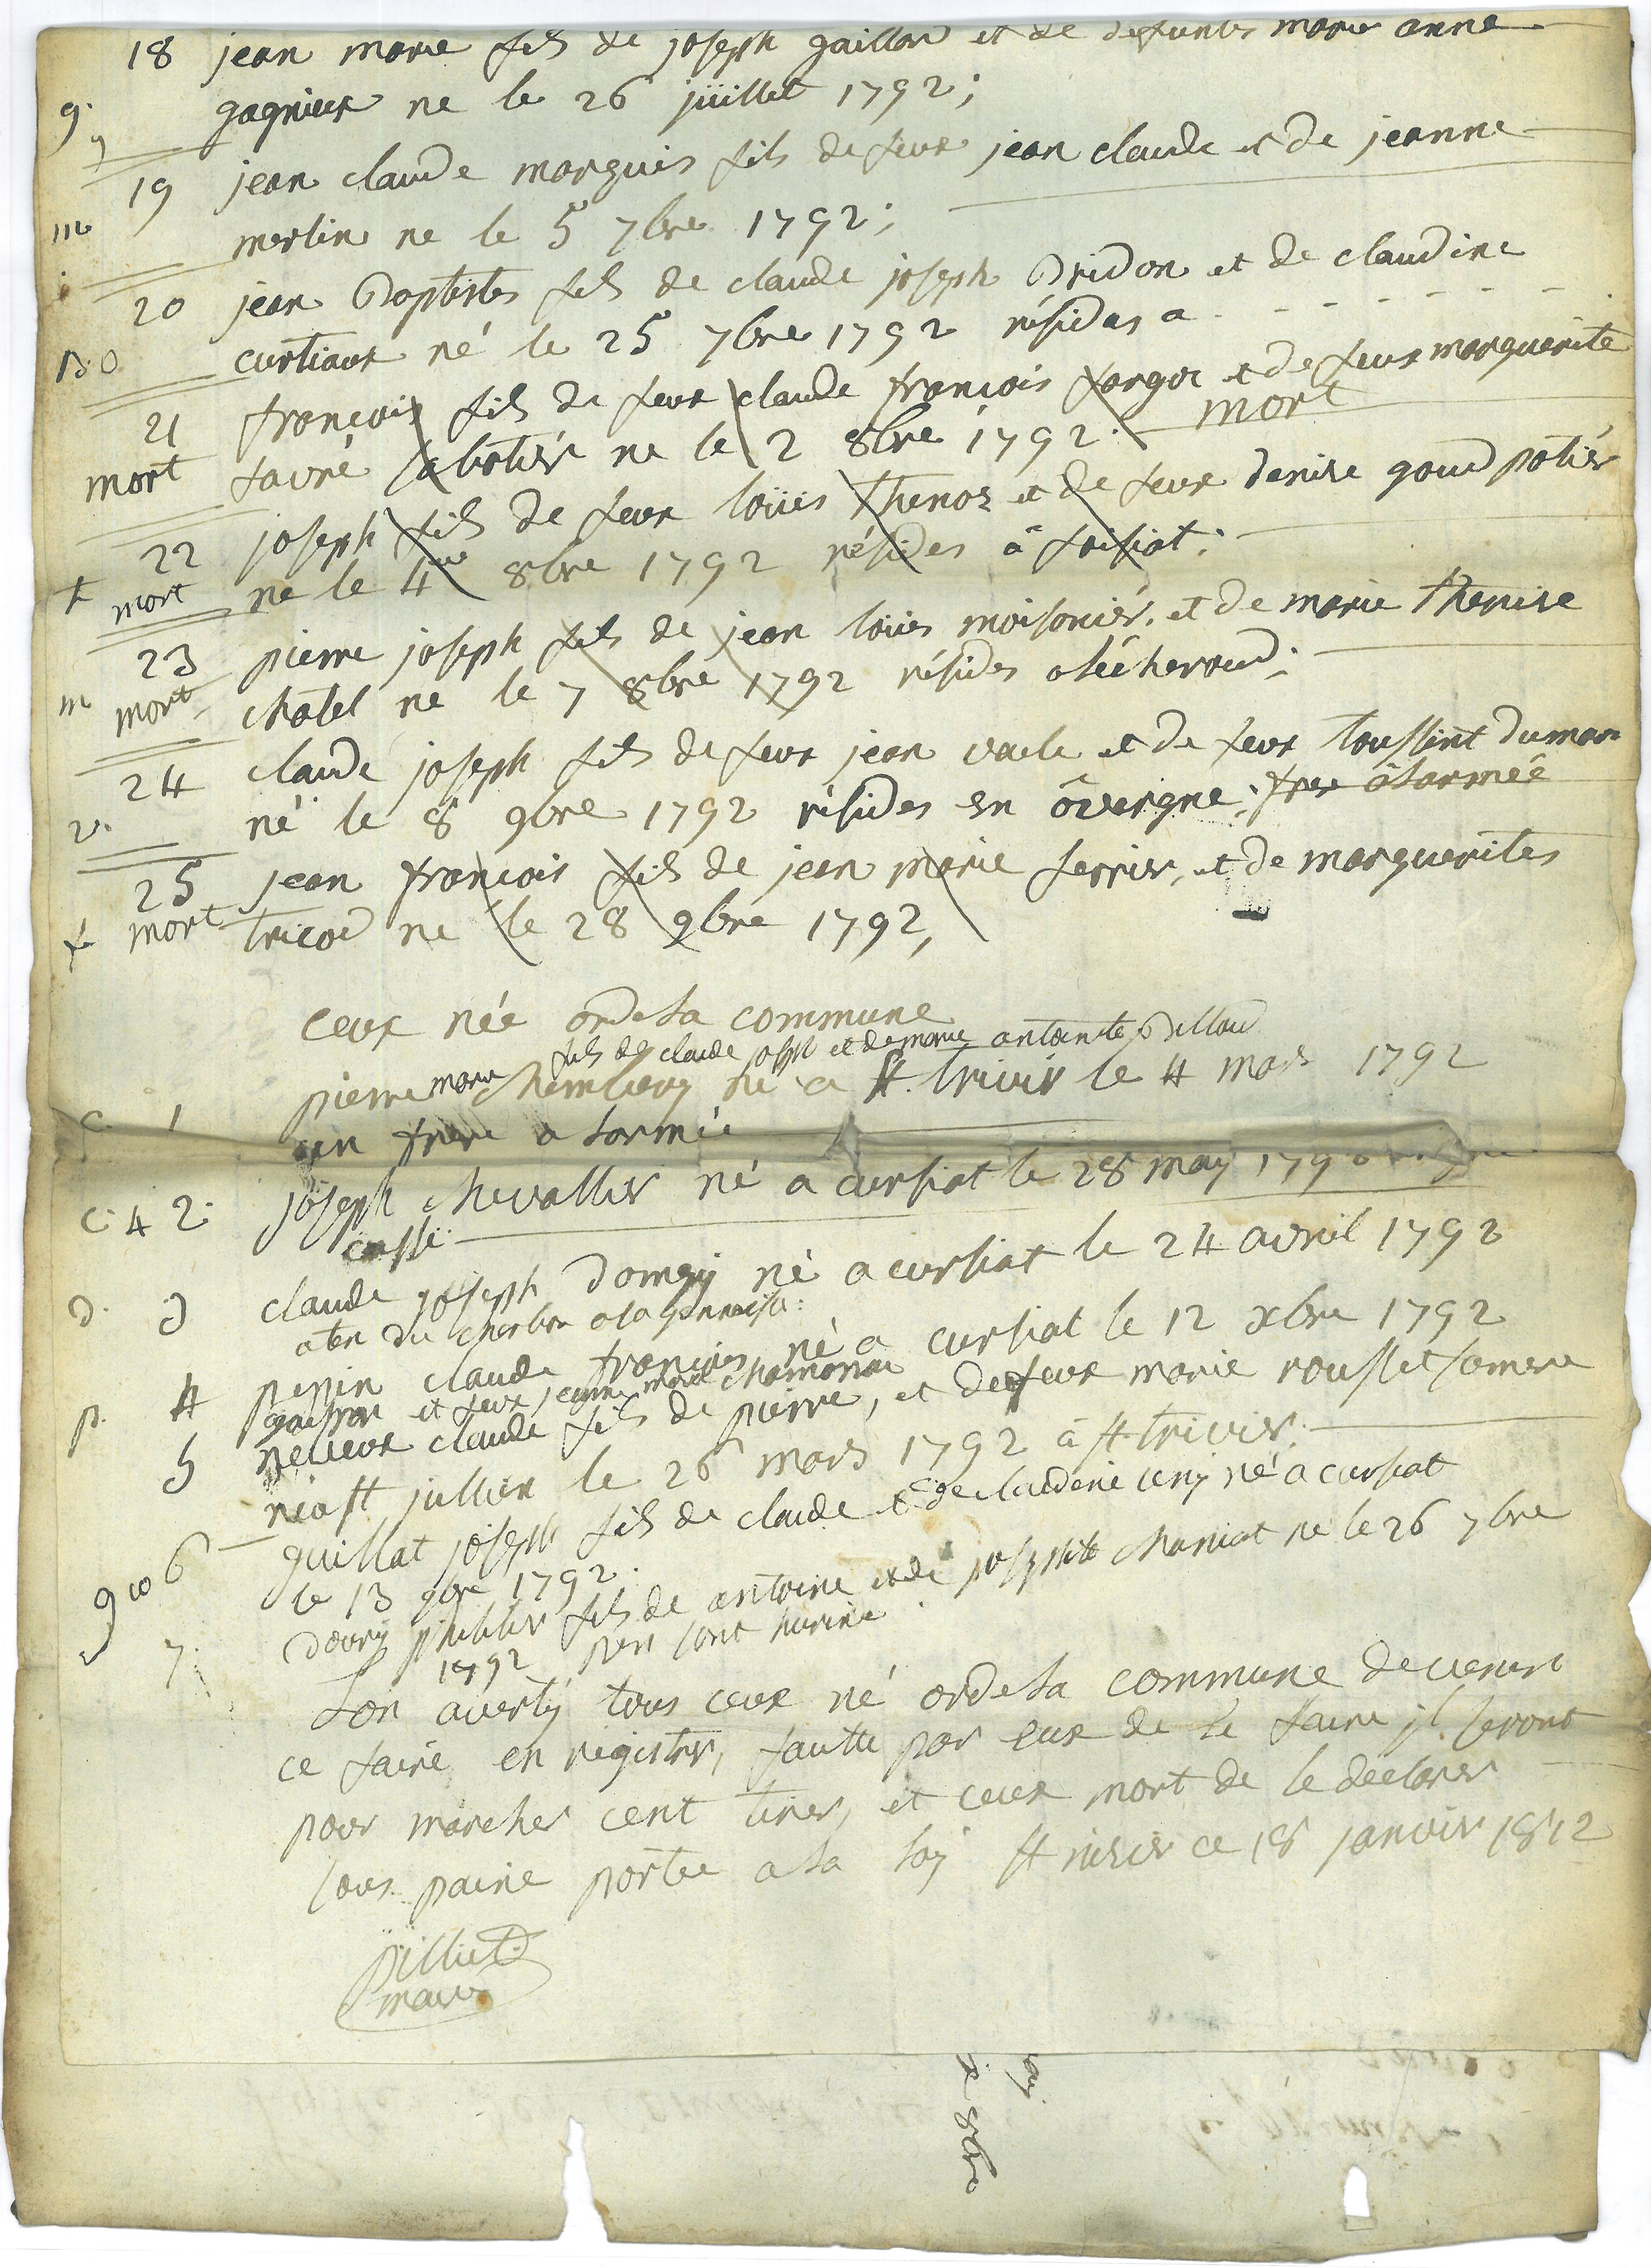 18 jean marie fils de joseph gaillard et de defunte marie anne
g. gagnieux ne le 26 juillet 1792;
19 jean claude marguin fils de feux jean claude et de jeanne
m merlin ne le 5 7bre 1792;
20 jean Baptiste fils de claude joseph Bridon et de claudine
B.O curtiaux né le 25 7bre 1792 résidas a - - - - - -
21 françois fils de feux claude françois forgor et de feux marguerite
mort favré labotier ne le 2 8bre 1792. mort
22 joseph fils de feux loüis Thenoz et de feux denise goud potiér
mort ne le 4me 8bre 1792 résides â foissiat;
23 pierre joseph fils de jean loües moisoniér, et de marie Therrise
m mort chatel ne le 7 8bre 1792 résides a lécheroud;
24 claude joseph fils de feux jean vaile et de feux toussint duman
v. né le 8 9bre 1792 résides en ôvergne; frex âlarmée
25 jean françois fils de jean marie ferrier, et de marguerites
mort tricod ne le 28 9bre 1792,
ceux née ordela commune
fils de claude joseph et de marie antointe Pillard
C. 1 pierre marie né a st. trivir le 4 mars 1792
un frere a larmée
C. 4 2. joseph chevallier né a cursiat le 28 may
D. 3 claude joseph Domgy né a cursiat le 24 avril 1792
p. 4 pepin claude françois né a cursiat le 12 xbre 1792
et feux jeanne marie
5 neveux claude fils de pierre, et defeux marie rousset samere
néa st jullien le 26 mars 1792 â st trivier.
6 guillat joseph fils de claude et de claudene né a cursiat
le 13 9bre 1792.
7. Doury fils de antoine et de josephte chaniat né le 26 7bre
1792
Lon averty tous ceux né ordela commune de venire
ce faire en régistrer, faute par eux de le faire jl seront
pour marcher cent tirer, et ceux mort de le déclarer
sous paine portée a la loy st trivier ce 18 janvier 1812
pilliet
maire
8bre